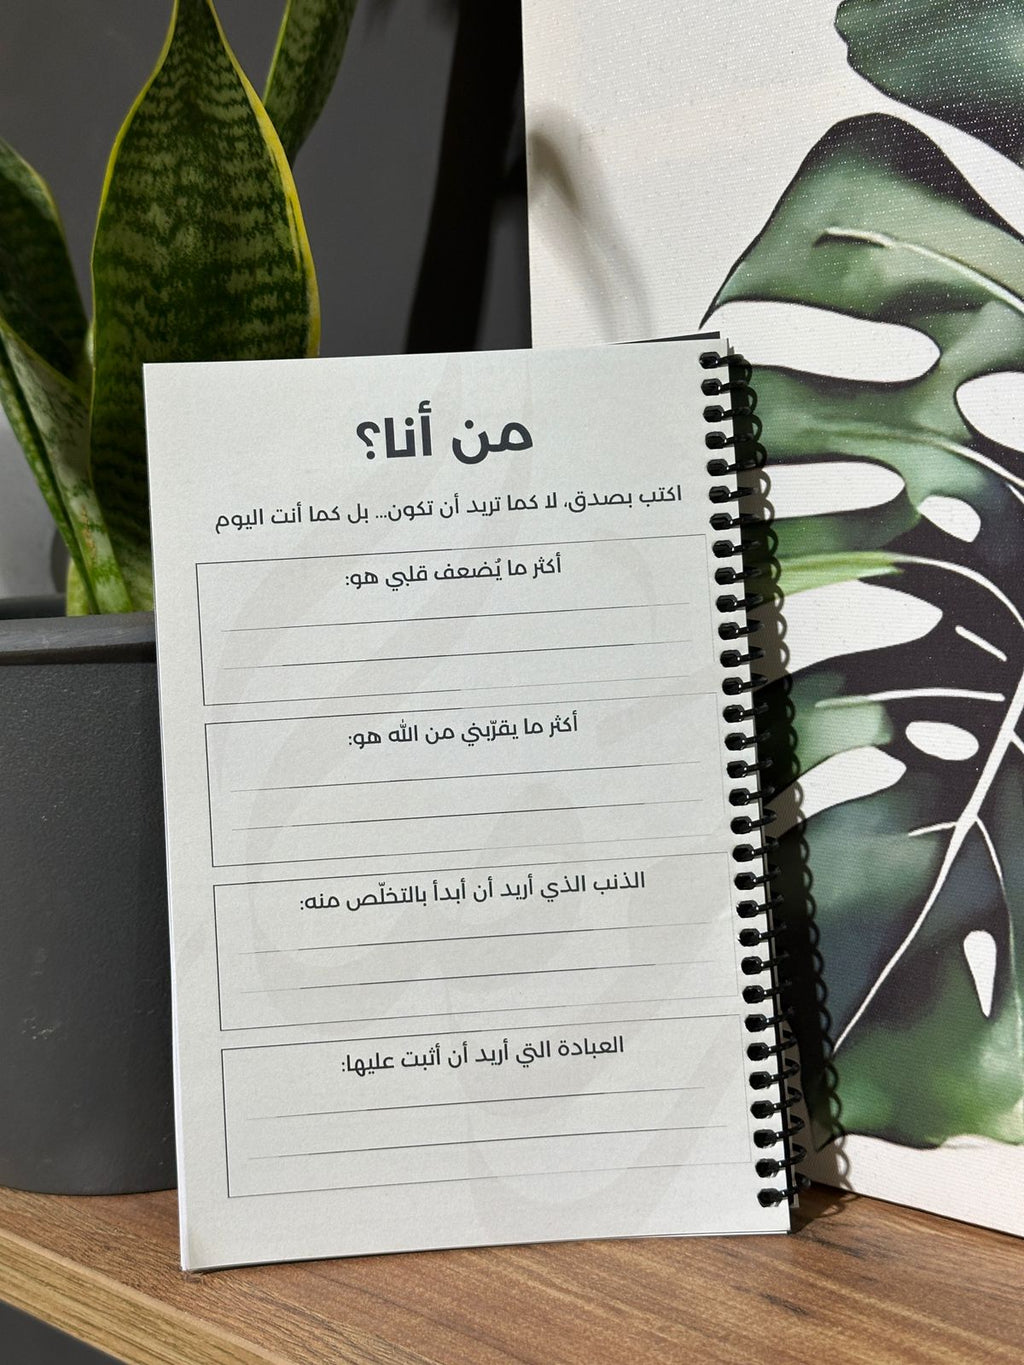 من أنا؟
اكتب بصدق، لا كما تريد أن تكون... بل كما أنت اليوم
أكثر ما يُضعف قلبي هو:
أكثر ما يقرّبني من الله هو:
الذنب الذي أريد أن أبدأ بالتخلّص منه:
العبادة التي أريد أن أثبت عليها: